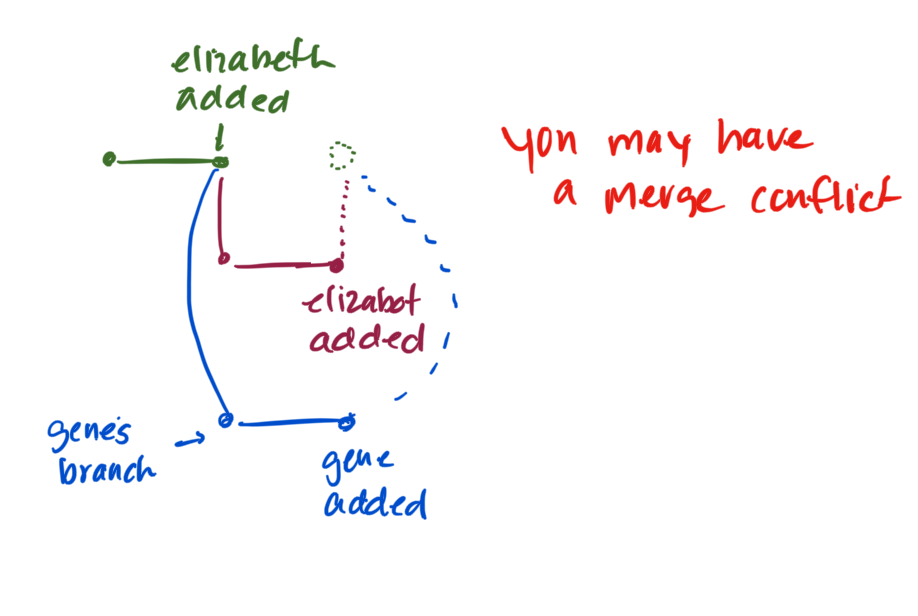 elizabeth
added
you may have
a merge conflict
elizabot
added
gene's
branch
gene
added